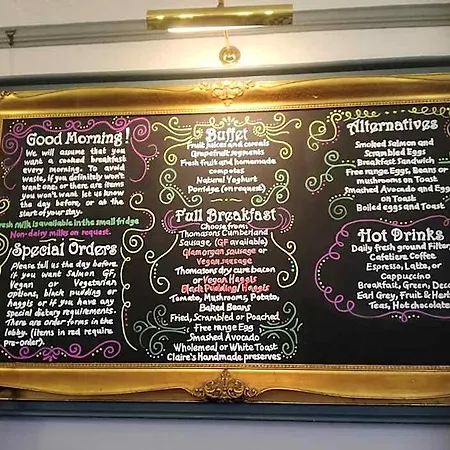 Good Morning!
We will assume that you
want a cooked breakfast
every morning. To avoid
waste, if you definitely won't
want one, or there are items
you won't want let us know
the day before, or at the
start of your stay.
Fresh milk is available in the small fridge
Non-dairy milks on request.
Special Orders
Please tell us the day before
if you want Salmon GF,
Vegan or Vegetarian
options, black pudding or
haggis or if you have any
special dietary requirements.
There are order forms in the
lobby. (items in red require
pre-order).
Buffet
Fruit juices and cereals
Grapefruit segments
Fresh fruit and homemade
compotes
Natural Yoghurt
Porridge (on request)
Full Breakfast
Choose from:
Thomasons Cumberland
Sausage, (GF available)
Glamorgan sausage or
Vegan sausage
Thomasons dry cure bacon
or Vegan Haggis
Black Pudding/Haggis
Tomato, Mushrooms, Potato,
Baked Beans
Fried, Scrambled or Poached
Free range Egg
Smashed Avocado
Wholemeal or White Toast
Claire's Handmade preserves
Alternatives
Smoked Salmon and
Scrambled Eggs
Breakfast Sandwich
Free range Eggs, Beans or
mushrooms on Toast
Smashed Avocado and Egg
on Toast
Boiled eggs and Toast
Hot Drinks
Daily fresh ground Filter,
Cafetiere Coffee
Espresso, Latte, or
Cappuccino
Breakfast, Green, Deca
Earl Grey, Fruit & Herb
Teas, Hot chocolate